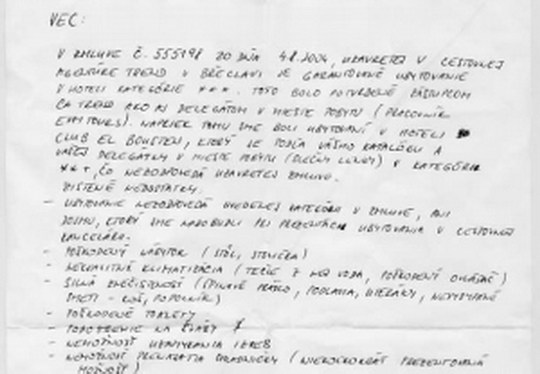 VEC:
V ZMLUVE Č. 555198 ZO DŇA 4.8.2004, UZAVRETEJ V CESTOVNEJ
AGENTÚRE TREND V BŘECLAVI JE GARANTOVANÉ UBYTOVANIE
V HOTELI KATEGÓRIE ***. TOTO BOLO POTVRDENÉ ZÁSTUPCOM
CA TREND AKO AJ DELEGÁTOM V MIESTE POBYTU (PRACOVNÍK
EXIMTOURS). NAPRIEK TOMU SME BOLI UBYTOVANÍ V HOTELI
CLUB EL BOUSTEN, KTORÝ JE PODĽA VÁŠHO KATALÓGU A
VAŠEJ DELEGÁTKY V MIESTE POBYTU (SLEČNY LENKY) V KATEGÓRII
**+, ČO NEZODPOVEDÁ UZAVRETEJ ZMLUVE.
ZISTENÉ NEDOSTATKY:
- UBYTOVANIE NEZODPOVEDÁ UVEDENEJ KATEGÓRII V ZMLUVE, ANI
DOJMU, KTORÝ SME NADOBUDLI PRI PREZENTÁCII UBYTOVANIA V CESTOVNEJ
KANCELÁRII.
- POŠKODENÝ NÁBYTOK (STÔL, STOLIČKA)
- NEKVALITNÁ KLIMATIZÁCIA (TEČIE Z NEJ VODA, POŠKODENÝ OVLÁDAČ)
- SILNÁ ZNEČISTENOSŤ (ŠPINAVÉ PRÁDLO, PODLAHA, UTERÁKY, NEVYSYPANÉ
SMETI - KOŠ, POPOLNÍK)
- POŠKODENÉ TOALETY
- POPLATNENIE NA PLÁŽI
- NEMOŽNOSŤ UZAMYKANIA IZIEB
- NEMOŽNOSŤ PRENAJATIA CHLADNIČKY (NIEKOĽKOKRÁT PREZENTOVANÁ
MOŽNOSŤ)